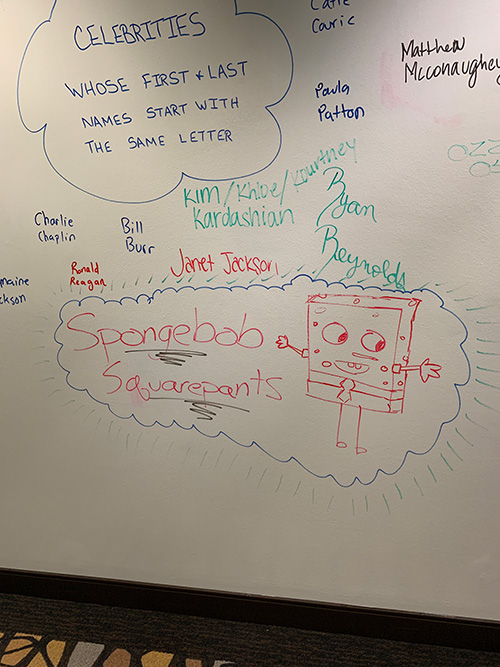 CELEBRITIES
WHOSE FIRST + LAST
NAMES START WITH
THE SAME LETTER
Curic
Matthew
Mcconaughey
Paula
Patton
Kim/Khloe/Kourtney
Kardashian
Ryan
Reynolds
Charlie
Chaplin
Bill
Burr
Ronald
Reagan
Janet Jackson
Spongebob
Squarepants